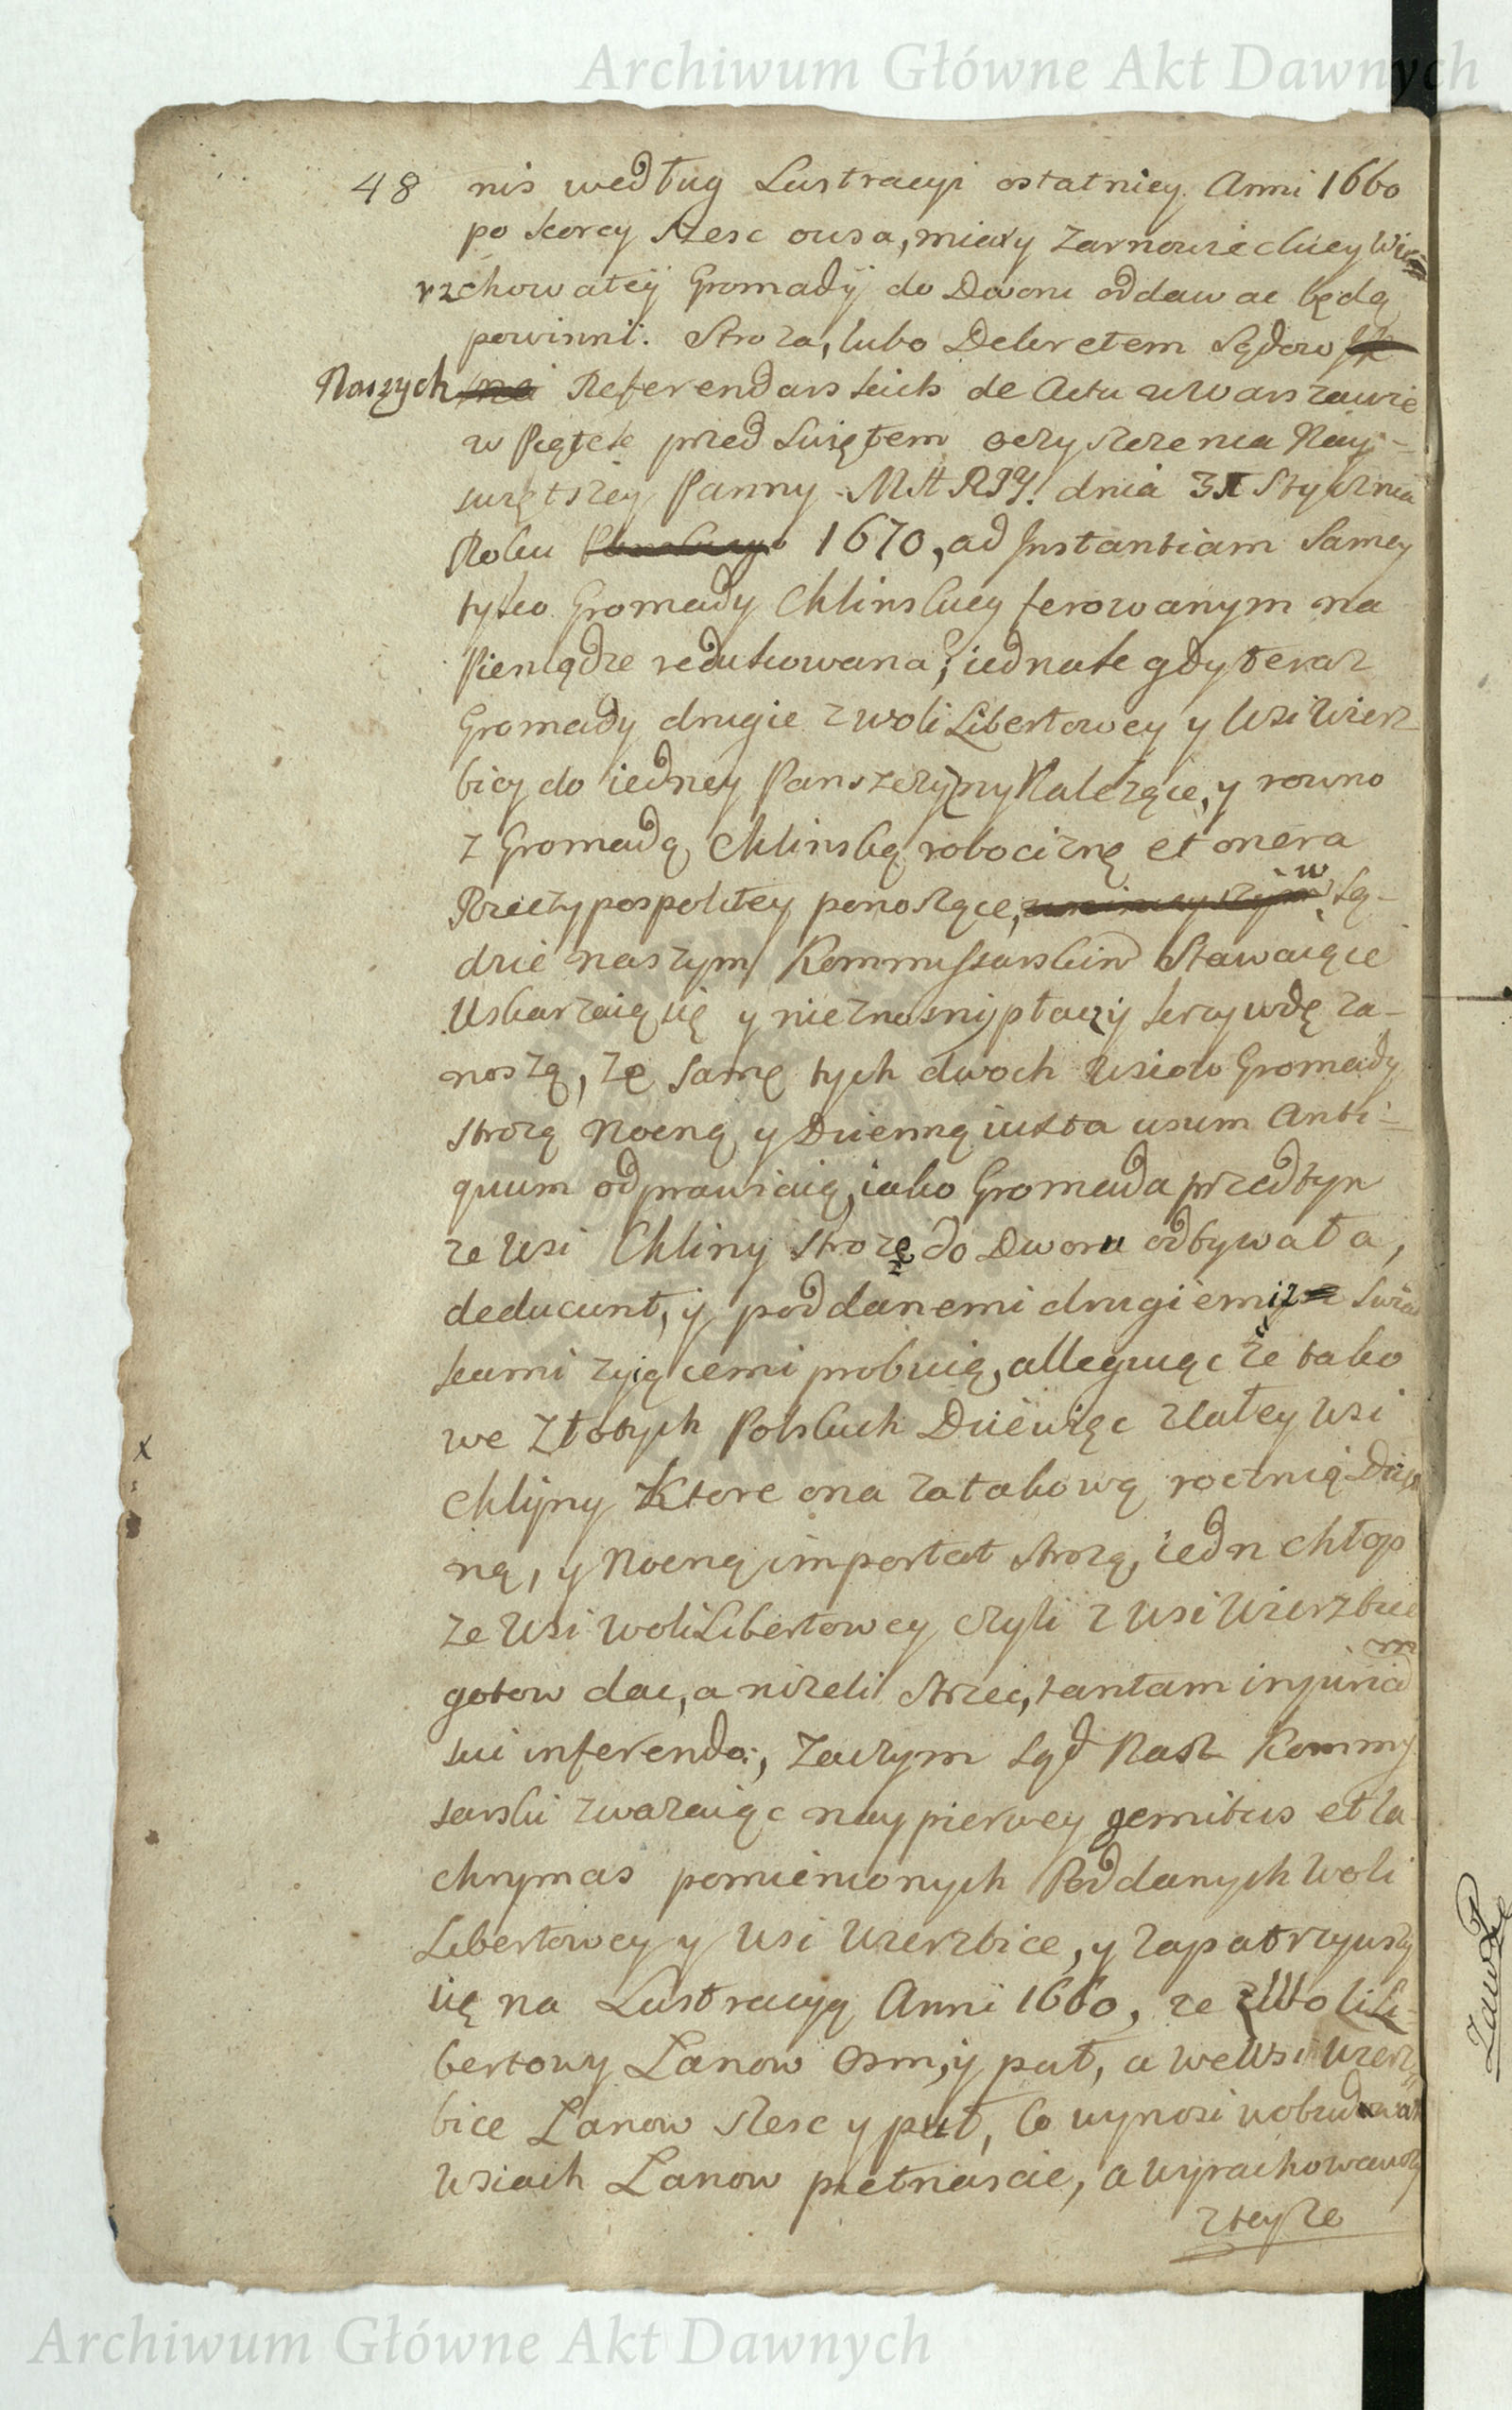 Archiwum Główne Akt Dawnych
48 nis według Lustracyi ostatniey Anni 1660
po korcy szesc owsa, miary Zarnowieckiey Wie=
rzchowatey Gromady do Dworu oddawac będą
powinni. Stroza, lubo Dekretem Sądow
Naszych Referendarskich de Actu w Warszawie
w Piątek przed Swiętem oczysczenia Nay-
swiętszey Panny MARIY. dnia 31 Stycznia
Roku 1670, ad Instantiam Samey
tylko Gromady Chlinskiey ferowanym na
Pieniądze redukowana; iednak gdy teraz
Gromady drugie z Woli Libertowey y Wsi Wierz
bicy do iedney Panszczyzny Nalezące, y rowno
z Gromadą Chlinską robociznę et onera
Rzeczypospolitey ponoszące, w Są-
dzie naszym Kommissarskim Stawaiące
Uskarzaią się y nieznosny płaczy krzywdę za-
noszą, ze same tych dwoch Wsiow Gromady
strozą Nocną y Dzienną iuxta usum Anti-
quum odprawiaią, iako Gromada przedtym
ze Wsi Chliny strozę do Dworu odbywała,
deducunt, y poddanemi drugiemi
kami zyiącemi probuią, alleguiąc ze tako
we Złotych Polskich Dziewięc z całey Wsi
Chlyny Ktore ona za takową rocznią Dzien
ną, y Nocną importat strozą, iedn chłop
ze Wsi Woli Libertowey czyli z Wsi Wierzbice
gotow dac, a nizeli strzec, tantam injuriam
sui inferendo:, Zaczym Sąd Nasz Kommis
sarski zwazaiąc naypierwey gemitus et la
chrymas pomienionych Poddanych Woli
Libertowey y Wsi Wierzbice, y zapatrzywszy
się na Lustracyą Anni 1660, ze z Woli Li-
bertowy Lanow Osm, y puł, a we Wsi Wierz
bice Lanow szesc y puł, Co wynosi w obudwoch
Wsiach Lanow pietnascie, a wyrachowawszy
z teyze
x
Archiwum Główne Akt Dawnych